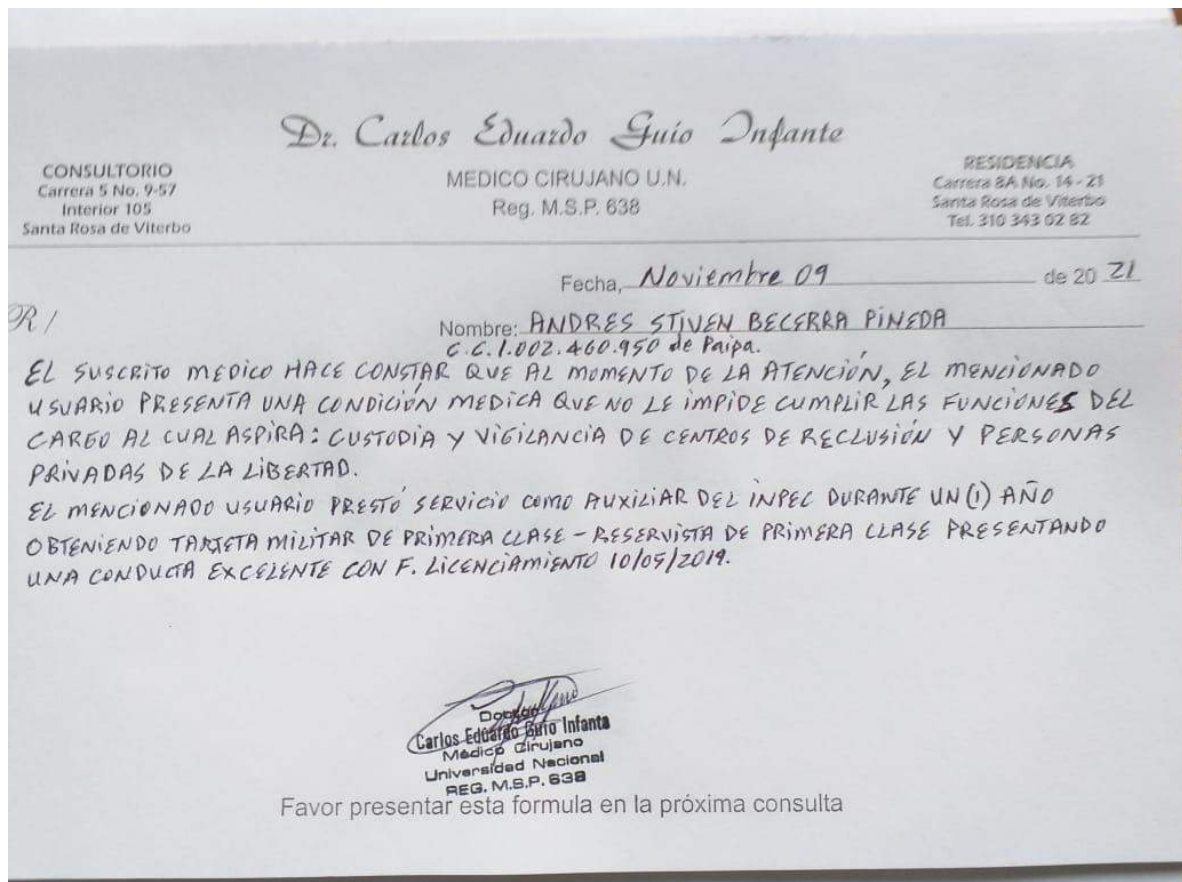 Dr. Carlos Eduardo Guio Infante
CONSULTORIO
Carrera 5 No. 9-57
Interior 105
Santa Rosa de Viterbo
MEDICO CIRUJANO U.N.
Reg. M.S.P. 638
RESIDENCIA
Carrera 8A No. 14 - 21
Santa Rosa de Viterbo
Tel. 310 343 02 82
Fecha, Noviembre 09 de 20 21
R/
Nombre: ANDRES STIVEN BECERRA PINEDA
C.C. 1.002.460.950 de Paipa.
EL SUSCRITO MEDICO HACE CONSTAR QUE AL MOMENTO DE LA ATENCIÓN, EL MENCIONADO
USUARIO PRESENTA UNA CONDICIÓN MEDICA QUE NO LE IMPIDE CUMPLIR LAS FUNCIONES DEL
CARGO AL CUAL ASPIRA: CUSTODIA Y VIGILANCIA DE CENTROS DE RECLUSIÓN Y PERSONAS
PRIVADAS DE LA LIBERTAD.
EL MENCIONADO USUARIO PRESTÓ SERVICIO COMO AUXILIAR DEL INPEC DURANTE UN (1) AÑO
OBTENIENDO TARJETA MILITAR DE PRIMERA CLASE - RESERVISTA DE PRIMERA CLASE PRESENTANDO
UNA CONDUCTA EXCELENTE CON F. LICENCIAMIENTO 10/05/2019.
Doctor
Carlos Eduardo Guio Infante
Médico Cirujano
Universidad Nacional
REG. M.S.P. 638
Favor presentar esta formula en la próxima consulta